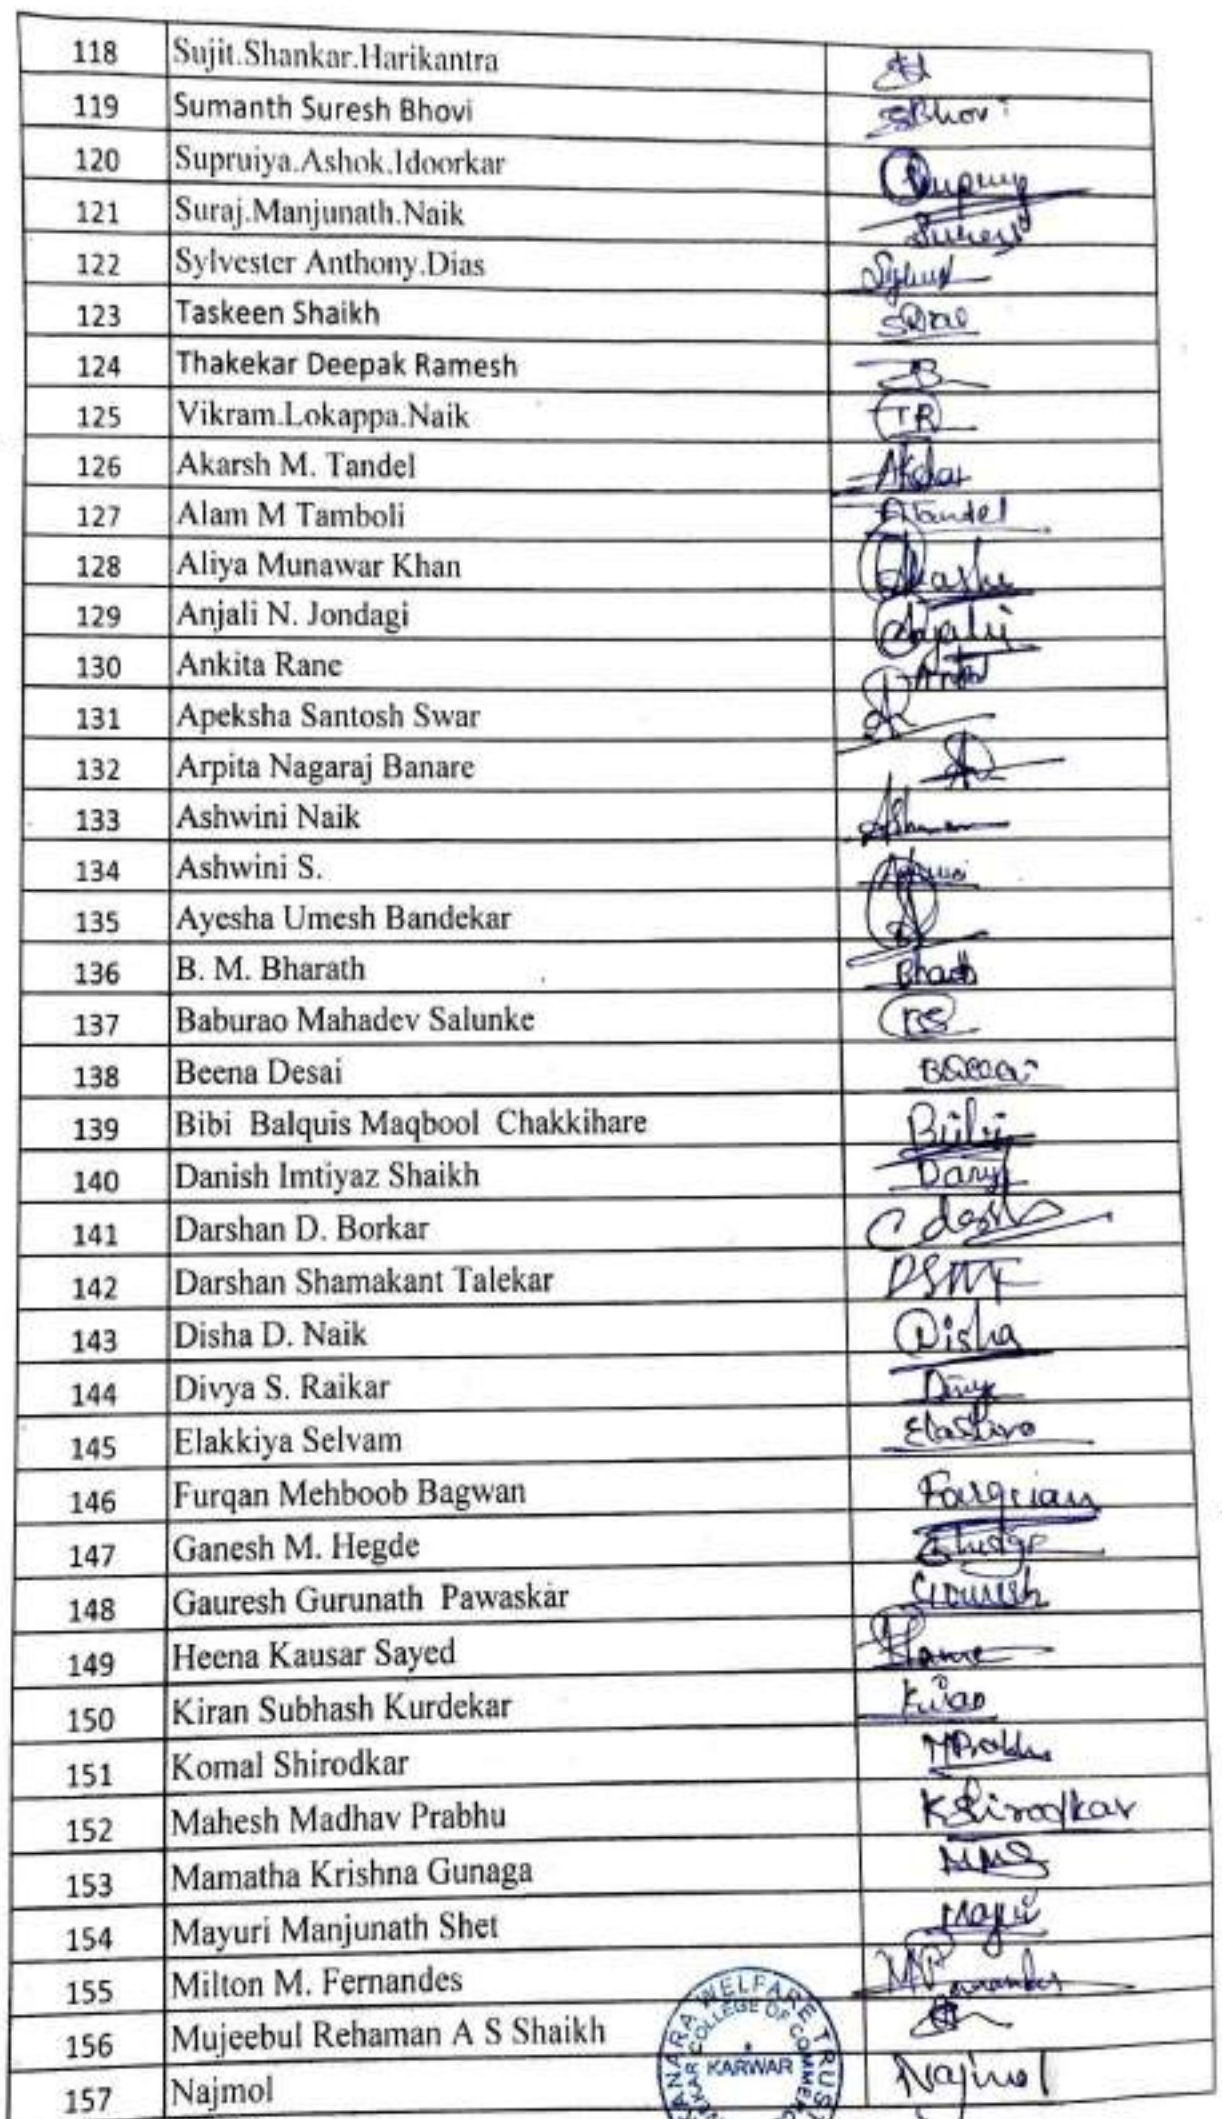 118 Sujit.Shankar.Harikantra
119 Sumanth Suresh Bhovi SBhovi
120 Supruiya.Ashok.Idoorkar
121 Suraj.Manjunath.Naik
122 Sylvester Anthony.Dias
123 Taskeen Shaikh
124 Thakekar Deepak Ramesh
125 Vikram.Lokappa.Naik TR
126 Akarsh M. Tandel
127 Alam M Tamboli ATandel
128 Aliya Munawar Khan
129 Anjali N. Jondagi
130 Ankita Rane
131 Apeksha Santosh Swar
132 Arpita Nagaraj Banare
133 Ashwini Naik
134 Ashwini S.
135 Ayesha Umesh Bandekar
136 B. M. Bharath
137 Baburao Mahadev Salunke BS
138 Beena Desai
139 Bibi Balquis Maqbool Chakkihare Bibi
140 Danish Imtiyaz Shaikh
141 Darshan D. Borkar
142 Darshan Shamakant Talekar
143 Disha D. Naik Disha
144 Divya S. Raikar
145 Elakkiya Selvam
146 Furqan Mehboob Bagwan
147 Ganesh M. Hegde
148 Gauresh Gurunath Pawaskar Gauresh
149 Heena Kausar Sayed
150 Kiran Subhash Kurdekar Kiran
151 Komal Shirodkar MPrabhu
152 Mahesh Madhav Prabhu KShirodkar
153 Mamatha Krishna Gunaga
154 Mayuri Manjunath Shet
155 Milton M. Fernandes
156 Mujeebul Rehaman A S Shaikh
157 Najmol Najmol
WELFARE TRUST
COLLEGE OF COMMERC
KARWAR